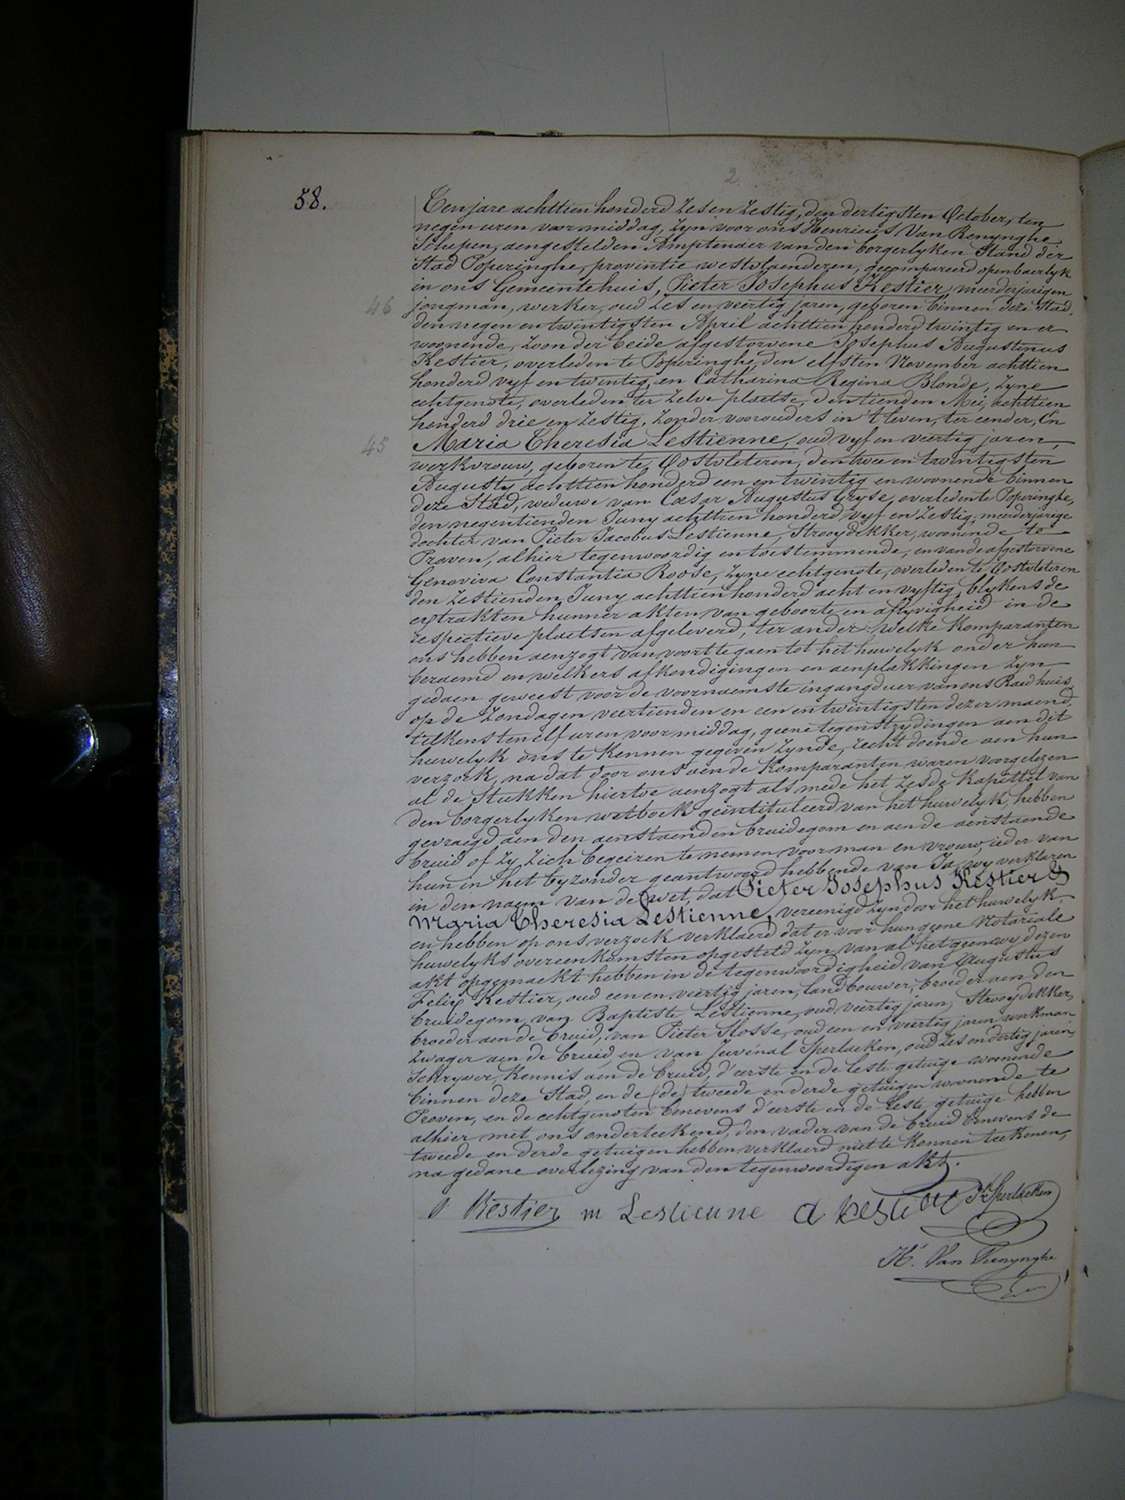 2.
58.
Ten jare achttien honderd zes en zestig, den dertigsten October, ten
negen uren voormiddag, zyn voor ons Henricus Van Renynghe
Schepen, aengestelden Amptenaer van den borgerlyken Stand der
Stad Poperinghe, provintie westvlaenderen, gecompareerd openbaerlyk
in ons Gemeentehuis, Pieter Josephus Kestier, meerderjarigen
46
jongman, werker, oud zes en veertig jaren, geboren binnen deze Stad
den negen en twintigsten April achttien honderd twintig en er
woonende, zoon der beide afgestorvene Josephus Augustinus
Kestier, overleden te Poperinghe, den elfsten November achttien
honderd vyf en twintig, en Catharina Regina Blonde, zyne
echtgenote, overleden ter zelve plaetse, den tienden Mei, achttien
honderd drie en zestig, zonder voorouders in 't leven, ter eender, En
45
Maria Theresia Lestienne, oud vyf en veertig jaren,
werkvrouw, geboren te Oostvleteren, den twee en twintigsten
Augusty achttien honderd een en twintig en woonende binnen
deze Stad, weduwe van Cæsar Augustus Gryse, overleden te Poperinghe,
den negentienden Juny achttien honderd vyf en zestig, meerderjarige
dochter van Pieter Jacobus Lestienne, Strooydekker, woonende te
Proven, alhier tegenwoordig en toestemmende, en van de afgestorvene
Genoviva Constantia Roose, zyne echtgenote, overleden te Oostvleteren
den zestienden Juny achttien honderd acht en vyftig, blykens de
extrakten hunner akten van geboorte en aflyvigheid in de
respectieve plaetsen afgeleverd, ter ander: welke Komparanten
ons hebben aenzogt van voort te gaen tot het huwelyk onder hun
beraemd en welkers afkondigingen en aenplakkingen zyn
gedaen geweest voor de voornaemste ingangduer van ons Raedhuis,
op de zondagen veertienden en een en twintigsten dezer maend,
telkens ten elf uren voor middag, geene tegenstrydingen aen dit
huwelyk ons te kennen gegeven zynde, recht doende aen hun
verzoek, na dat door ons aen de Komparanten waren voorgelezen
al de Stukken hiertoe aenzogt als mede het zesde kapittel van
den borgerlyken wetboek geïntituleerd van het huwelyk, hebben
gevraegd aen den aenstaenden bruidegom en aen de aenstaende
bruid of zy zich begeiren te nemen voor man en vrouw, ieder van
hun in het byzonder geantwoord hebbende van Ja, wy verklaren
in den naem van de wet, dat Pieter Josephus Kestier &
Maria Theresia Lestienne, vereenigd zyn door het huwelyk
en hebben op ons verzoek verklaerd dat er voor hun geene Notariale
huwelyks overeenkomsten opgesteld zyn, van al het geen wy dezen
akt opgemaekt hebben in de tegenwoordigheid van Augustus
Felix Kestier, oud een en veertig jaren, landbouwer, broeder aen den
bruidegom, van Baptiste Lestienne, oud veertig jaren, Strooydekker,
broeder aen de bruid, van Pieter Slosse, oud een en veertig jaren, werkman
zwager aen de bruid, en van Juvénal Sperlaeken, oud zes en dertig jaren,
Schryver, kennis aen de bruid, d'eerste en de leste getuige woonende
binnen deze Stad, en de (de) tweede en derde getuigen woonende te
Proven, en de echtgenoten benevens d'eerste en de leste getuige hebben
alhier met ons onderteekend, den vader van de bruid benevens de
tweede en derde getuigen hebben verklaerd niet te konnen teekenen,
na gedane overlezing van den tegenwoordigen akt.
Kestier m Lestienne a kestier Sperlaeken
H. Van Renynghe